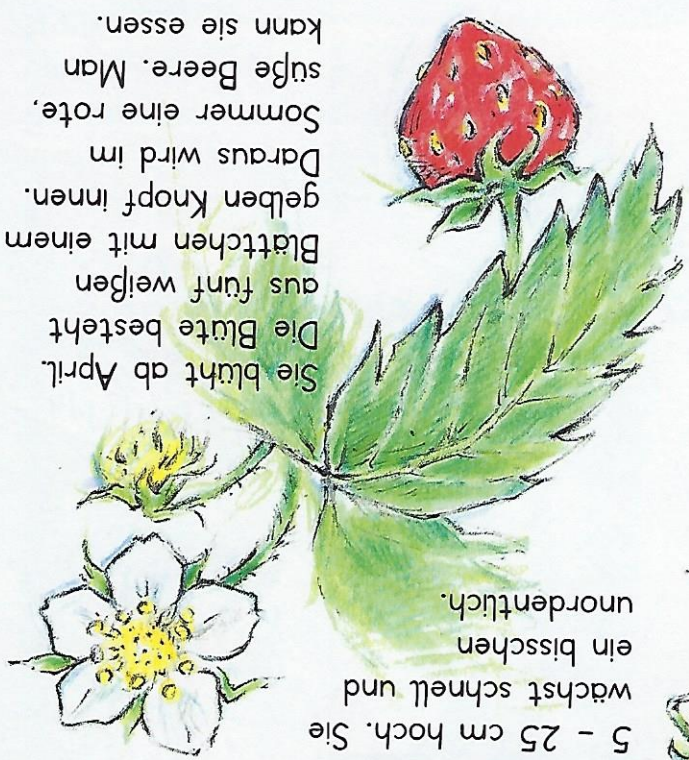 5 – 25 cm hoch. Sie
wächst schnell und
ein bisschen
unordentlich.
Sie blüht ab April.
Die Blüte besteht
aus fünf weißen
Blättchen mit einem
gelben Knopf innen.
Daraus wird im
Sommer eine rote,
süße Beere. Man
kann sie essen.